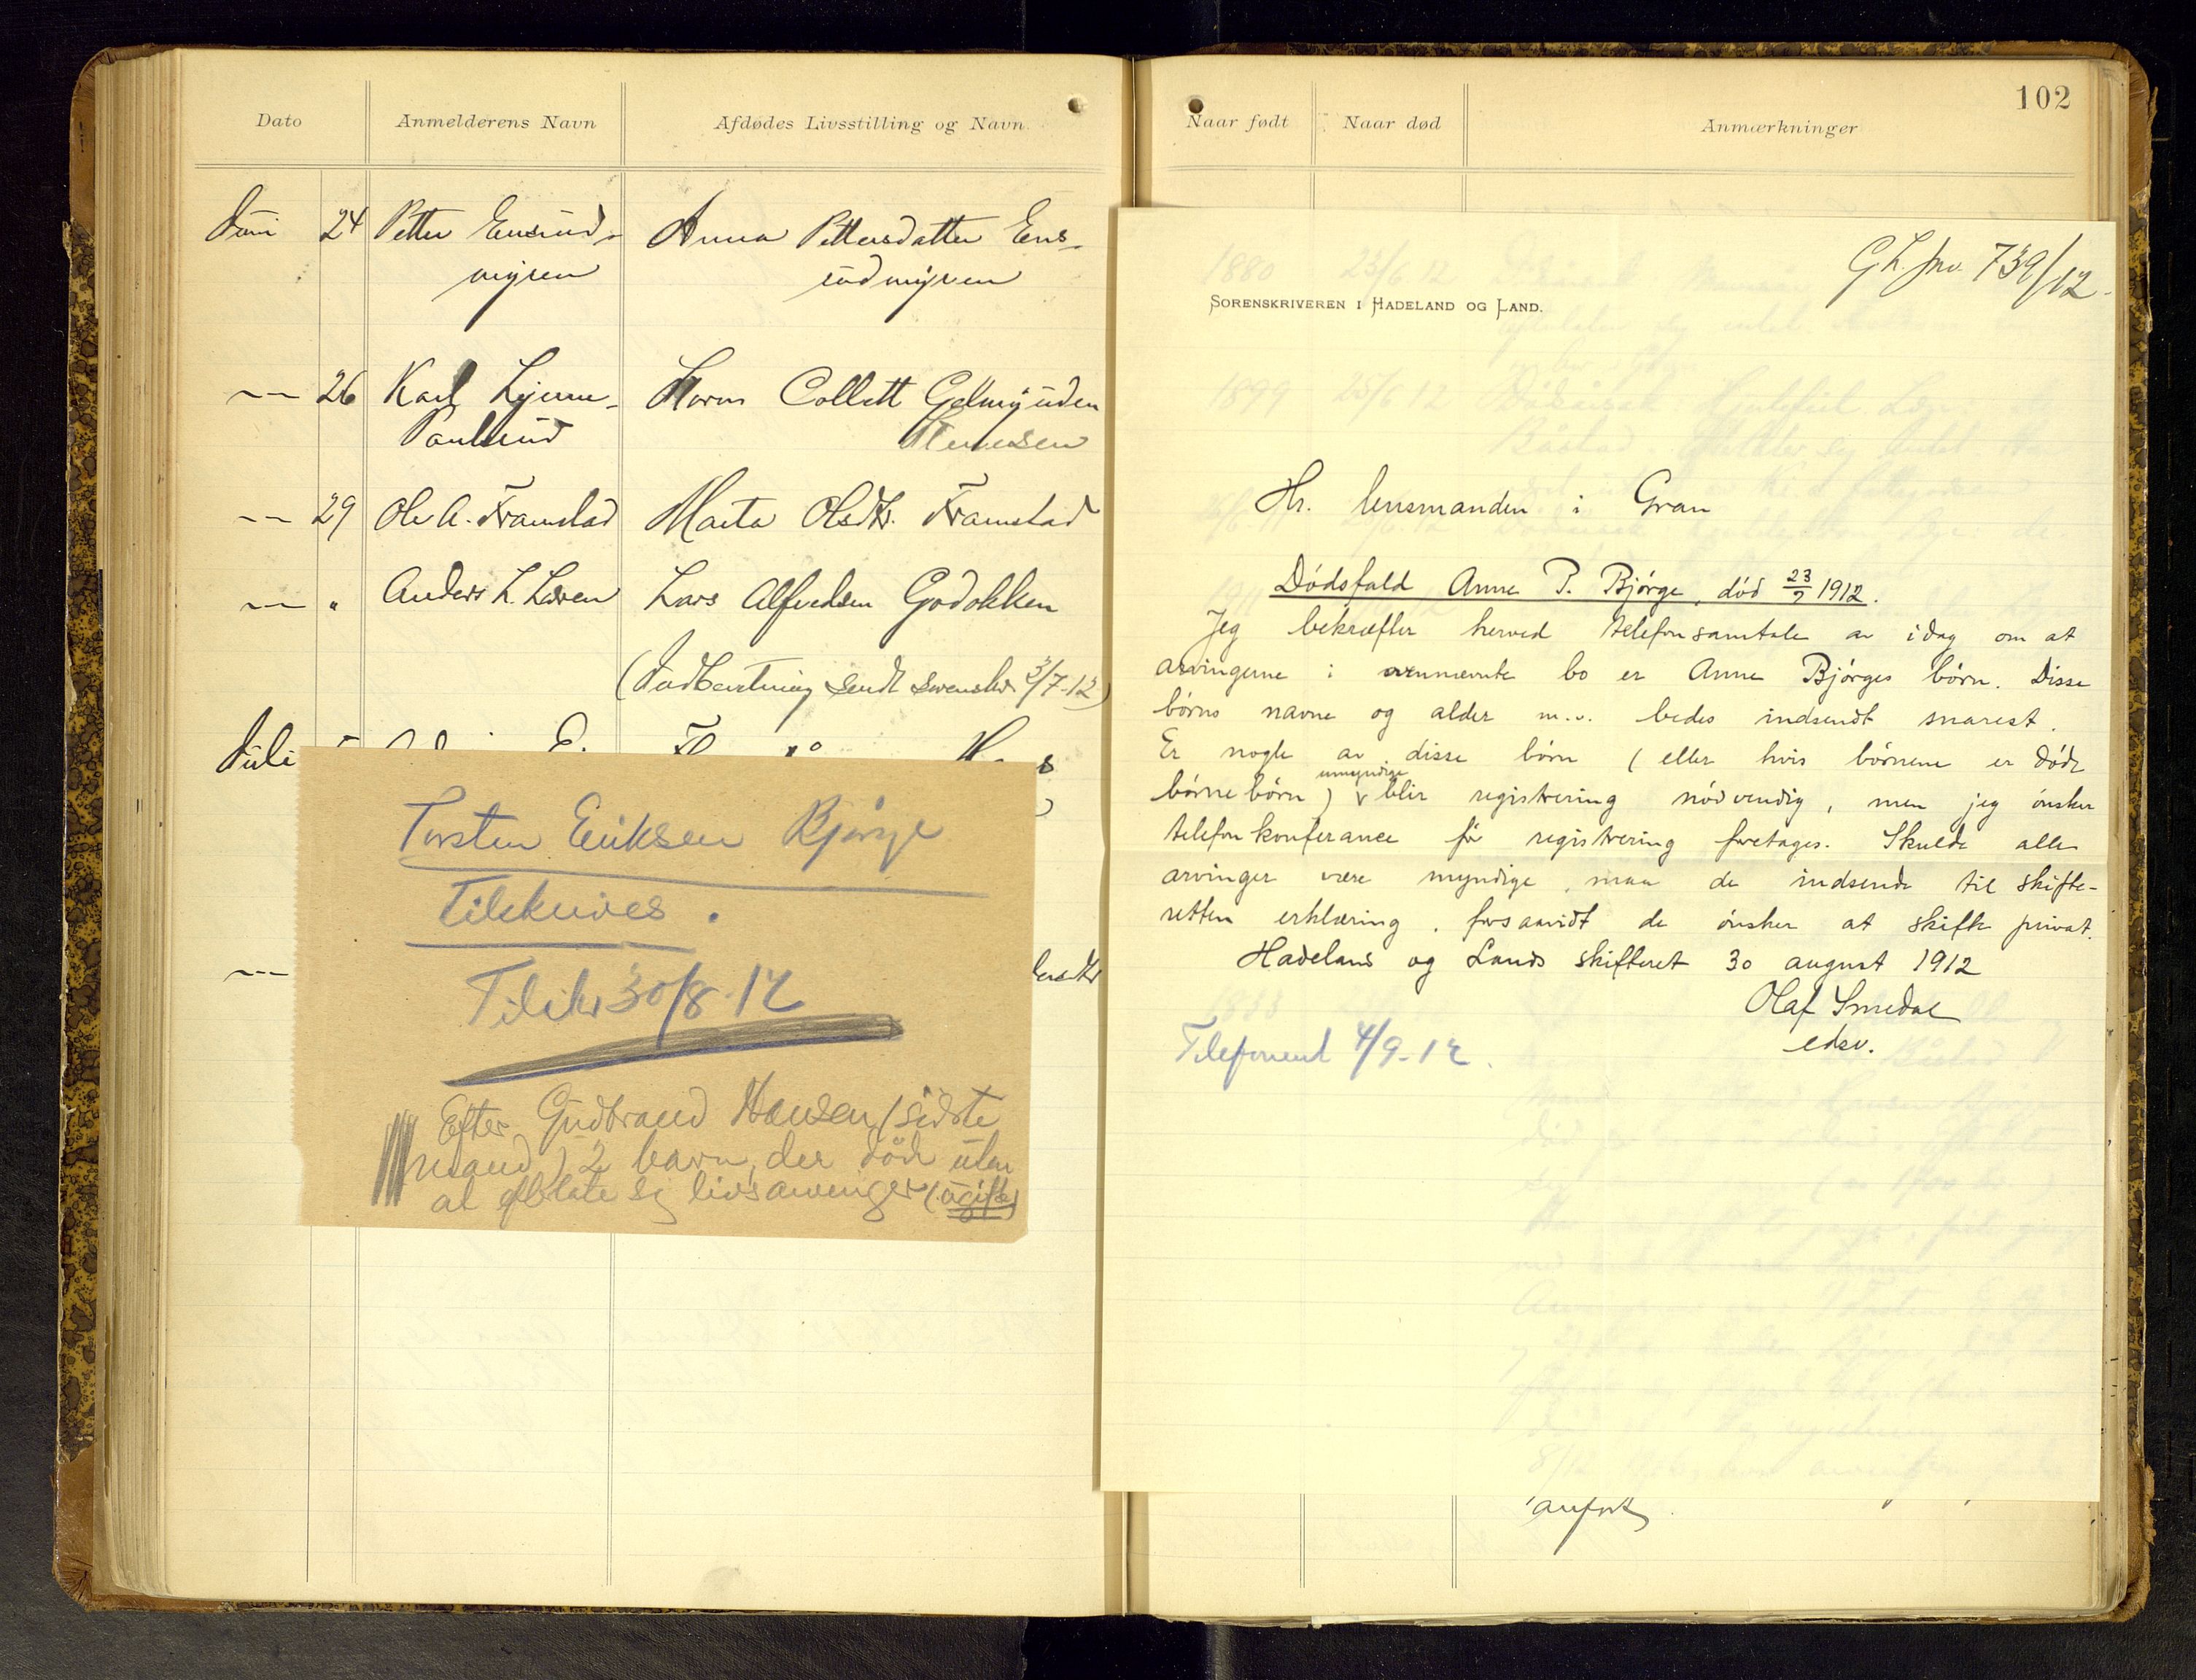 Dato
Anmelderens Navn
Afdødes Livsstilling og Navn.
Juni 24 Petter Ensrud-
myren
Anna Pettersdatter Ens-
rudmyren
-"- 26 Karl
Paulsrud
Collett
-"- 29 Ole A. Framstad
Marta Olsdtr. Framstad
-"- " Anders L. Løven
Lars Alfredsen Godokken
(Indberetning sendt sorenskr. 3/7-12)
Juli
-"-
Torsten Eriksen Bjørge
Tilskrives.
Tilskr 30/8-12
Efter Gudbrand Hansen (sidste
mand) 2 barn, der döde uten
at efterlate sig livsarvinger (ugifte)
102
Naar født
Naar død
Anmærkninger
G L. jnr. 739/12.
SORENSKRIVEREN I HADELAND OG LAND.
Hr. lensmanden i Gran
Dødsfald Anne P. Bjørge, død 23/7 1912.
Jeg bekræfter herved telefonsamtale av idag om at
arvingerne i ovennævnte bo er Anne Bjørges børn. Disse
børns navne og alder m.v. bedes indsendt snarest.
Er nogle av disse børn (eller hvis børnene er døde
børnebørn) umyndige blir registrering nødvendig, men jeg ønsker
telefonkonferance før registrering foretages. Skulde alle
arvinger være myndige, maa de indsende til skifte-
retten erklæring, forsaavidt de ønsker at skifte privat.
Hadelands og Lands skifteret 30 august 1912
Olaf Smedal
edsv.
Telefonert 4/9-12.
anført